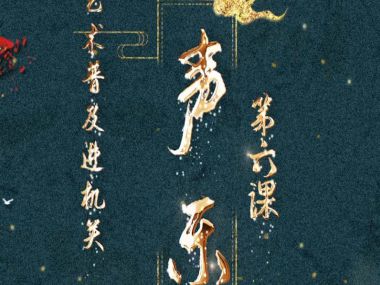 艺术普及进机关
声乐
第六课